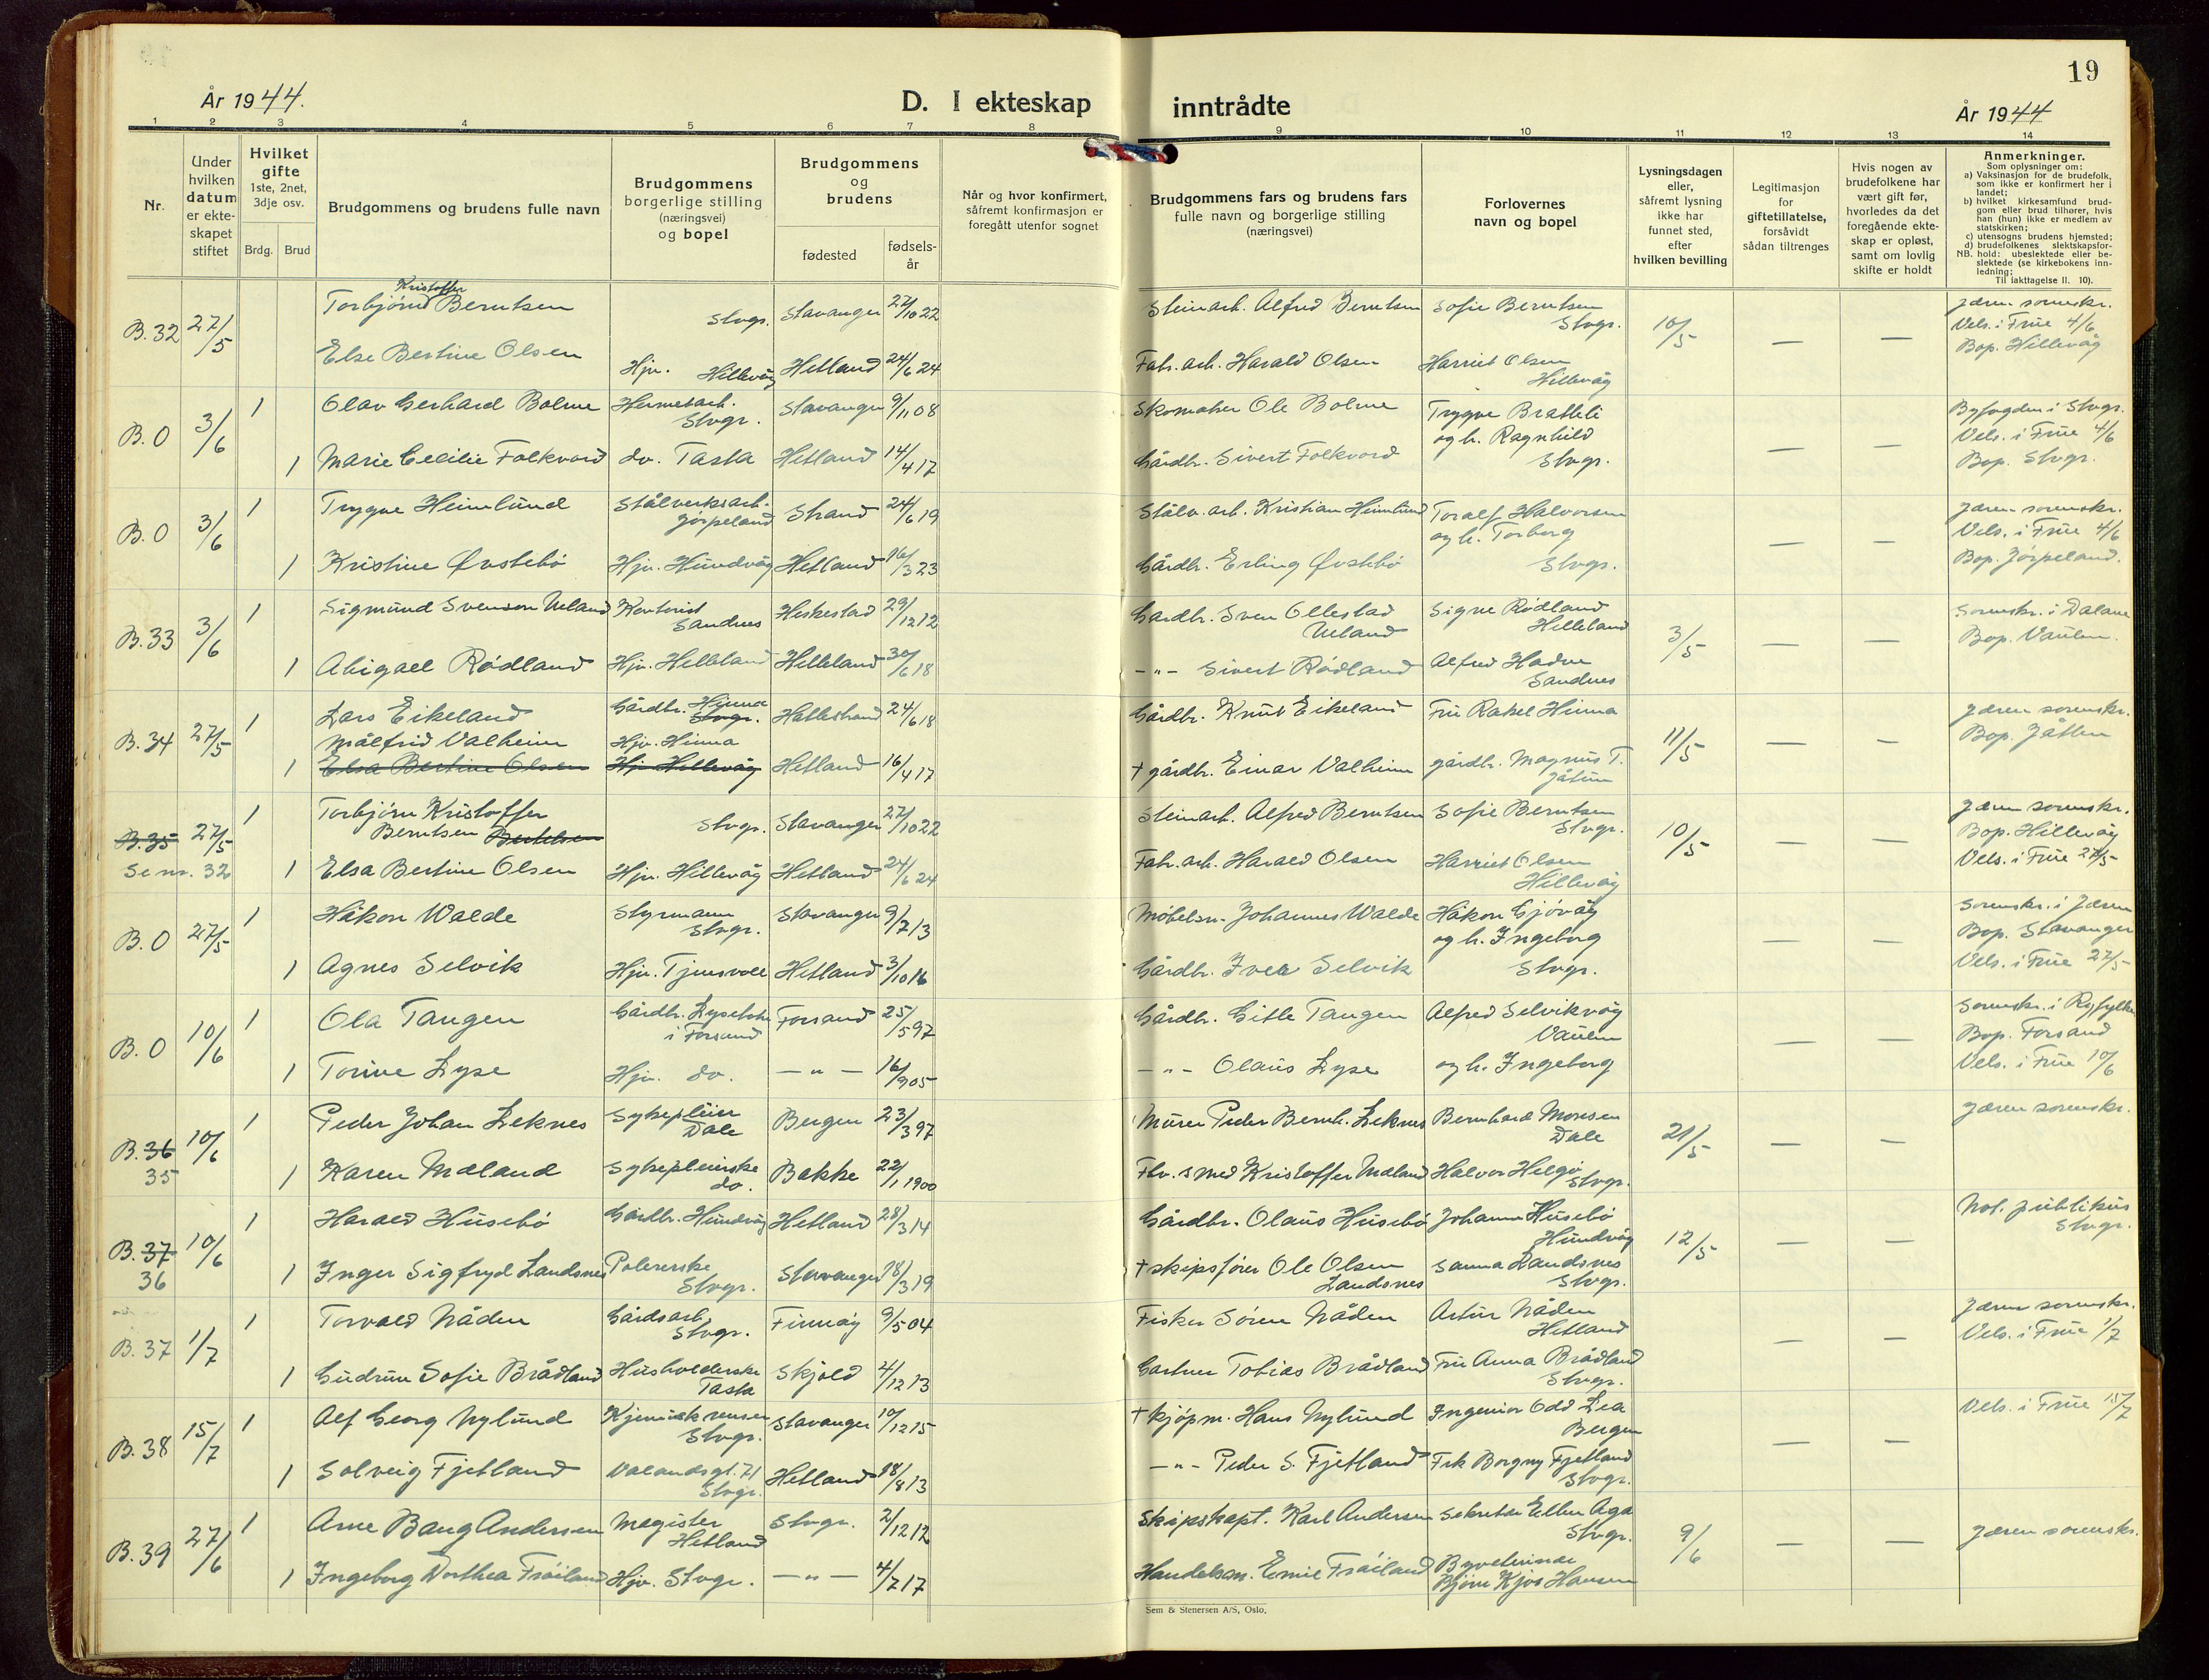 19
År 1944.
D. I ekteskap inntrådte
År 1944
1 2 3 4 5 6 7 8 9 10 11 12 13 14
Nr.
Under hvilken datum er ekteskapet stiftet
Hvilket gifte
1ste, 2net, 3dje osv.
Brdg. Brud
Brudgommens og brudens fulle navn
Brudgommens borgerlige stilling (næringsvei) og bopel
Brudgommens og brudens
fødested
fødselsår
Når og hvor konfirmert, såfremt konfirmasjon er foregått utenfor sognet
Brudgommens fars og brudens fars fulle navn og borgerlige stilling (næringsvei)
Forlovernes navn og bopel
Lysningsdagen eller, såfremt lysning ikke har funnet sted, efter hvilken bevilling
Legitimasjon for giftetillatelse, forsåvidt sådan tiltrenges
Hvis nogen av brudefolkene har vært gift før, hvorledes da det foregående ekteskap er opløst, samt om lovlig skifte er holdt
Anmerkninger.
Som oplysninger om:
a) Vaksinasjon for de brudefolk, som ikke er konfirmert her i landet;
b) hvilket kirkesamfund brudgom eller brud tilhører, hvis han (hun) ikke er medlem av statskirken;
c) utensogns brudens hjemsted;
d) brudefolkenes slektskapsforhold: ubeslektede eller beslektede (se kirkebokens innledning;
NB.
Til iakttagelse II. 10).
B. 32 27/5 Torbjørn Kristoffer Berntsen Stvgr. Stavanger 27/10 22 Steinarb. Alfred Berntsen Sofie Berntsen Stvgr. 10/5 — — Jæren sorenskr.
Vels. i Frue 4/6
Bop. Hillevåg
Else Bertine Olsen Hjv. Hillevåg Hetland 24/6 24 Fabr. arb. Harald Olsen Harriet Olsen Hillevåg
B. 0 3/6 1 Olav Gerhard Bolme Hermetarb. Stvgr. Stavanger 9/11 08 Skomaker Ole Bolme Trygve Bratteli og h. Ragnhild Stvgr. — — Byfogden i Stvgr.
Vels. i Frue 4/6
Bop. Stvgr.
1 Marie Cecilie Folkvord do. Tasta Hetland 14/4 17 Gårdbr. Sivert Folkvord
B. 0 3/6 1 Trygve Heimlund Stålverksarb. Jørpeland Strand 24/6 19 Stålv. arb. Kristian Heimlund Toralf Halvorsen og h. Torborg Stvgr. — — Jæren sorenskr.
Vels. i Frue 4/6
Bop. Jørpeland.
1 Kristine Øvstebø Hjv. Hundvåg Hetland 16/3 23 Gårdbr. Erling Øvstebø
B. 33 3/6 1 Sigmund Svenson Ueland Kontorist Sandnes Heskestad 29/12 12 Gardbr. Sven Ollestad Ueland Signe Rødland Helleland 3/5 — — Sorenskr. i Dalane
Bop. Vaulen.
1 Abigael Rødland Hjv. Helleland Helleland 30/6 18 - " - Sivert Rødland Alfred Hadne Sandnes
B. 34 27/5 1 Lars Eikeland Gårdbr. Hinna Stvgr. Hatlestrand 24/6 18 Gårdbr. Knut Eikeland Fru Rakel Hinna 11/5 — — Jæren sorenskr.
Bop. Jåtten
Målfrid Valheim Hjv. Hinna
1 Elsa Bertine Olsen Hjv. Hillevåg Hetland 16/4 17 † gårdbr. Einar Valheim gårdbr. Magnus T. Jåtun
B. 35 27/5 1 Torbjørn Kristoffer Berntsen Bertelsen Stvgr. Stavanger 27/10 22 Steinarb. Alfred Berntsen Sofie Berntsen Stvgr. 10/5 — — Jæren sorenskr.
Bop. Hillevåg
Vels. i Frue 27/5
Se nr. 32 1 Elsa Bertine Olsen Hjv. Hillevåg Hetland 24/6 24 Fabr. arb. Harald Olsen Harriet Olsen Hillevåg
B. 0 27/5 1 Håkon Walde Styrmann Stvgr. Stavanger 9/7 13 Møbelsn. Johannes Walde Håkon Gjøvåg og h. Ingeborg Stvgr. — — Sorenskr. i Jæren
Bop. Stavanger
Vels. i Frue 27/5
1 Agnes Selvik Hjv. Tjensvoll Hetland 3/10 16 Gårdbr. Iver Selvik
B. 0 10/6 1 Ola Tangen Gårdbr. Lysebotn i Forsand Forsand 25/5 97 Gårdbr. Gitle Tangen Alfred Selvikvåg Vaulen — — Sorenskr. i Ryfylke
Bop. Forsand
Vels. i Frue 10/6
1 Torine Lyse Hjv. do. — " — 16/9 05 - " - Olaus Lyse og h. Ingeborg
B. 36 35 10/6 1 Peder Johan Leknes Sykepleier Dale Bergen 23/3 97 Murer Peder Bernh. Leknes Bernhard Monsen Dale 21/5 — — Jæren sorenskr.
1 Karen Mæland Sykepleierske do. Bakke 22/1 1900 Fhv. smed Kristoffer Mæland Halvor Helgø Stvgr.
B. 37 36 10/6 1 Harald Husebø Gårdbr. Hundvåg Hetland 28/3 14 Gårdbr. Olaus Husebø Johanna Husebø Hundvåg 12/5 — — Not. publikus Stvgr.
1 Inger Sigfryd Landsnes Polererske Stvgr. Stavanger 18/3 19 † skipsfører Ole Olsen Landsnes Sanna Landsnes Stvgr.
B. 37 1/7 1 Torvald Nåden Gårdsarb. Stvgr. Finnøy 9/5 04 Fisker Sören Nåden Artur Nåden Hetland — — Jæren sorenskr.
Vels. i Frue 1/7
1 Gudrun Sofie Brådland Husholderske Tasta Skjold 4/12 13 Gartner Tobias Brådland Fru Anna Brådland Stvgr.
B. 38 15/7 1 Alf Georg Nylund Kjemiskrenser Stvgr. Stavanger 10/12 15 † kjøpm. Hans Nylund Ingeniør Odd Lea Bergen — — Vels. i Frue 15/7
1 Solveig Fjetland Valandsgt. 71 Stvgr. Hetland 18/8 13 — " — Peder S. Fjetland Frk Borgny Fjetland Stvgr.
B. 39 27/6 1 Arne Bang Andersen Magister Hetland Stvgr. 2/12 12 Skipskapt. Karl Andersen Sekretær Ellen Aga Stvgr. 9/6 — — Jæren sorenskr.
1 Ingeborg Dorthea Frøiland Hjv. Stvgr. — " — 4/7 17 Handelsm. Emil Frøiland Byveterinær Bjørn Kjos Hansen
Sem & Stenersen A/S, Oslo.